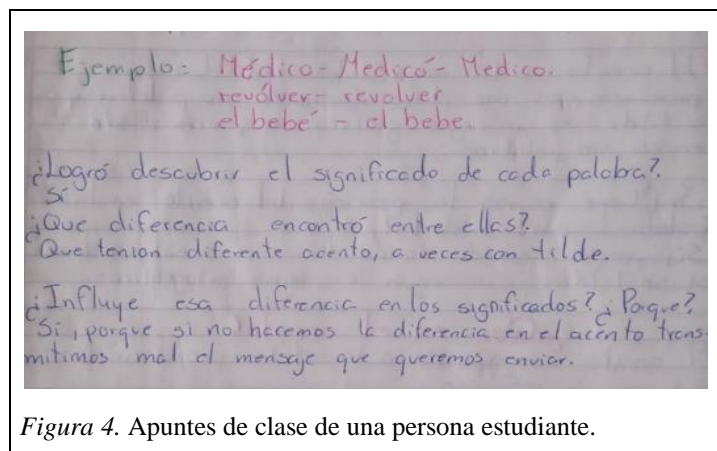 Ejemplo: Médico - Medicó - Medico.
revólver - revolver
el bebé - el bebe.
¿Logró descubrir el significado de cada palabra?.
Sí
¿Que diferencia encontró entre ellas?
Que tenían diferente acento, a veces con tilde.
¿Influye esa diferencia en los significados? ¿Porque?
Si, porque si no hacemos la diferencia en el acento trans-
mitimos mal el mensaje que queremos enviar.
Figura 4. Apuntes de clase de una persona estudiante.